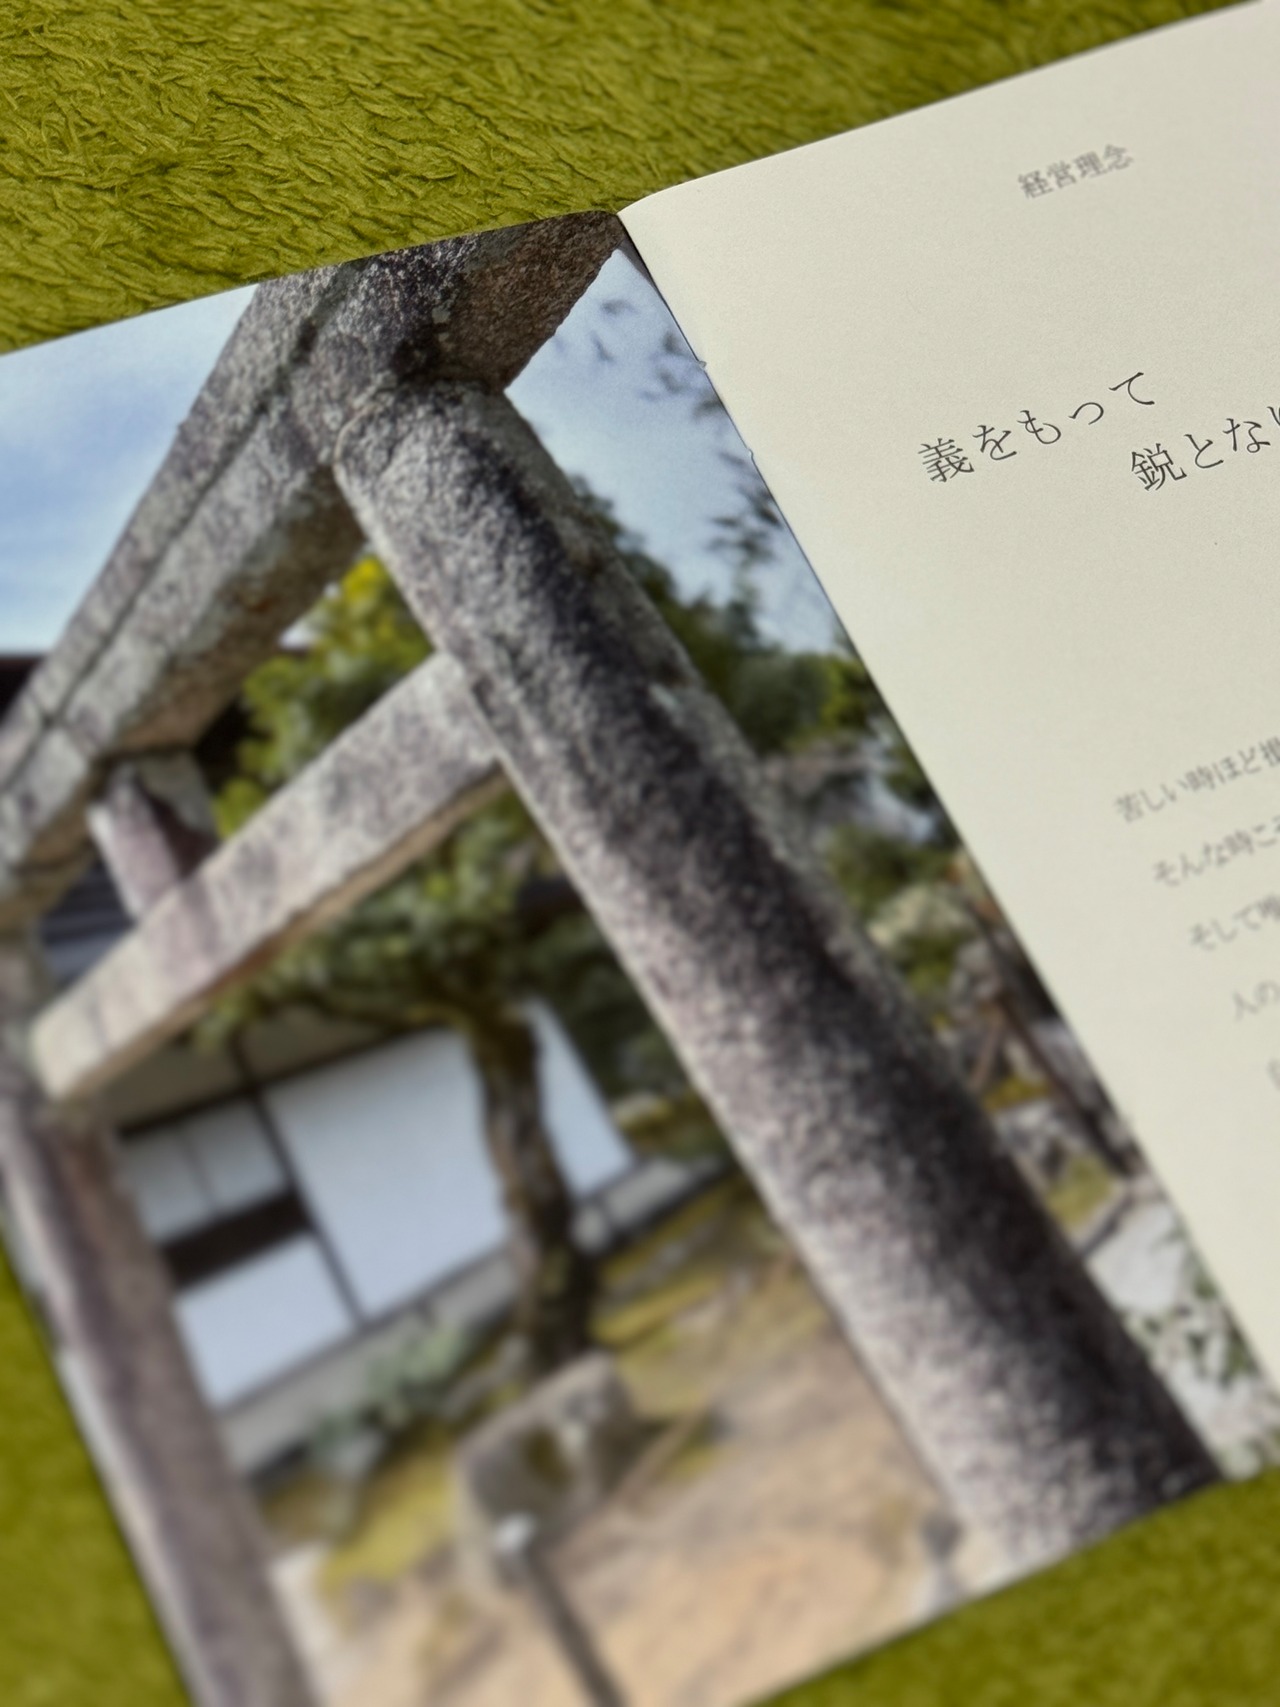 経営理念
義をもって
鋭とな
苦しい時ほど
そんな時こ
そして
人の